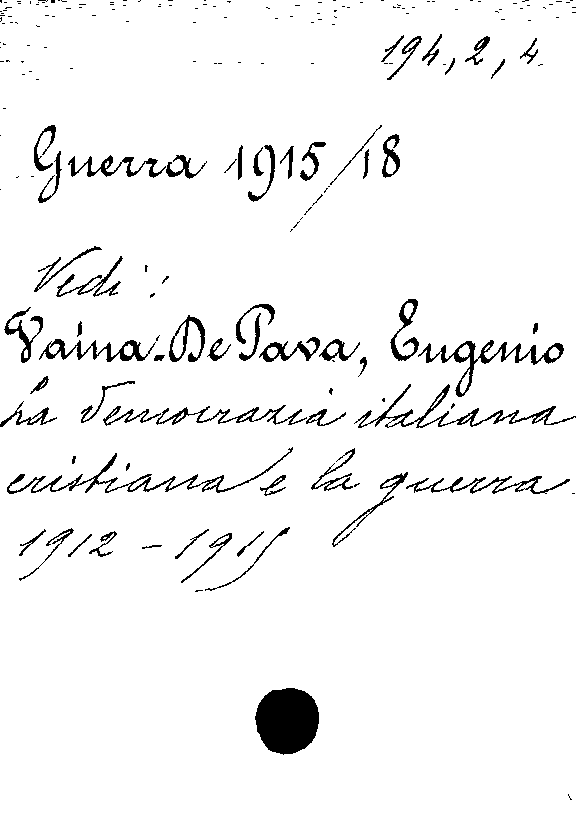 194,2,4
Guerra 1915/18
Vedi:
Vaina-De Pava, Eugenio
La democrazia italiana
cristiana e la guerra
1912 - 1915